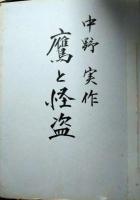 中野実作
鷹と怪盗